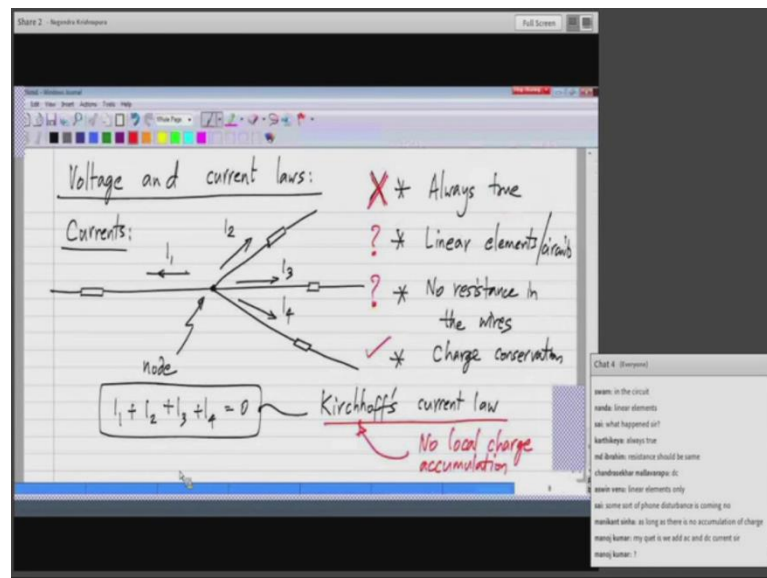 Share 2 - Nagendra Krishnapura
Full Screen
Edit View Insert Actions Tools Help
Voltage and current laws:
Currents:
I1
I2
I3
I4
node
I1 + I2 + I3 + I4 = 0
Kirchhoff's current law
No local charge
accumulation
X * Always true
? * Linear elements/circuits
? * No resistance in
the wires
✓ * Charge conservation
Chat 4 (Everyone)
swarn: in the circuit
nanda: linear elements
sai: what happened sir?
karthikeya: always true
md ibrahim: resistance should be same
chandrasekhar mallavarapu: dc
aswin venu: linear elements only
sai: some sort of phone disturbance is coming no
manikant sinha: as long as there is no accumulation of charge
manoj kumar: my quet is we add ac and dc current sir
manoj kumar: ?